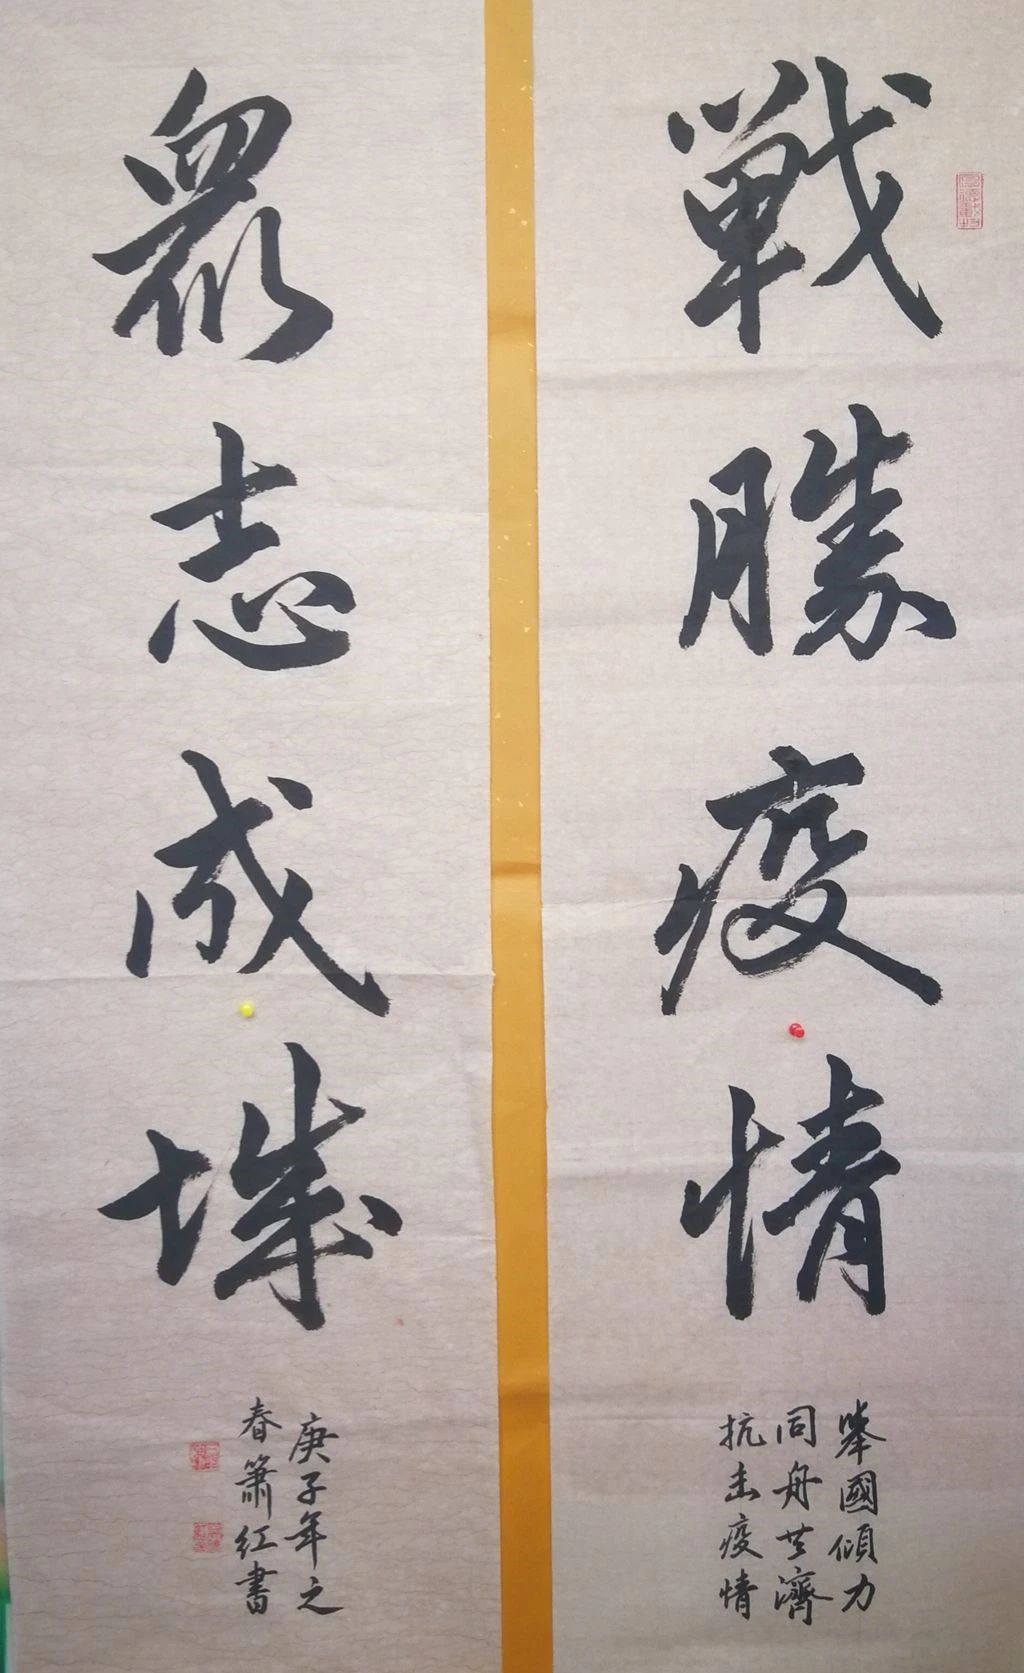 戦勝疫情
眾志成城
舉國傾力
同舟共濟
抗击疫情
庚子年之
春箫紅書